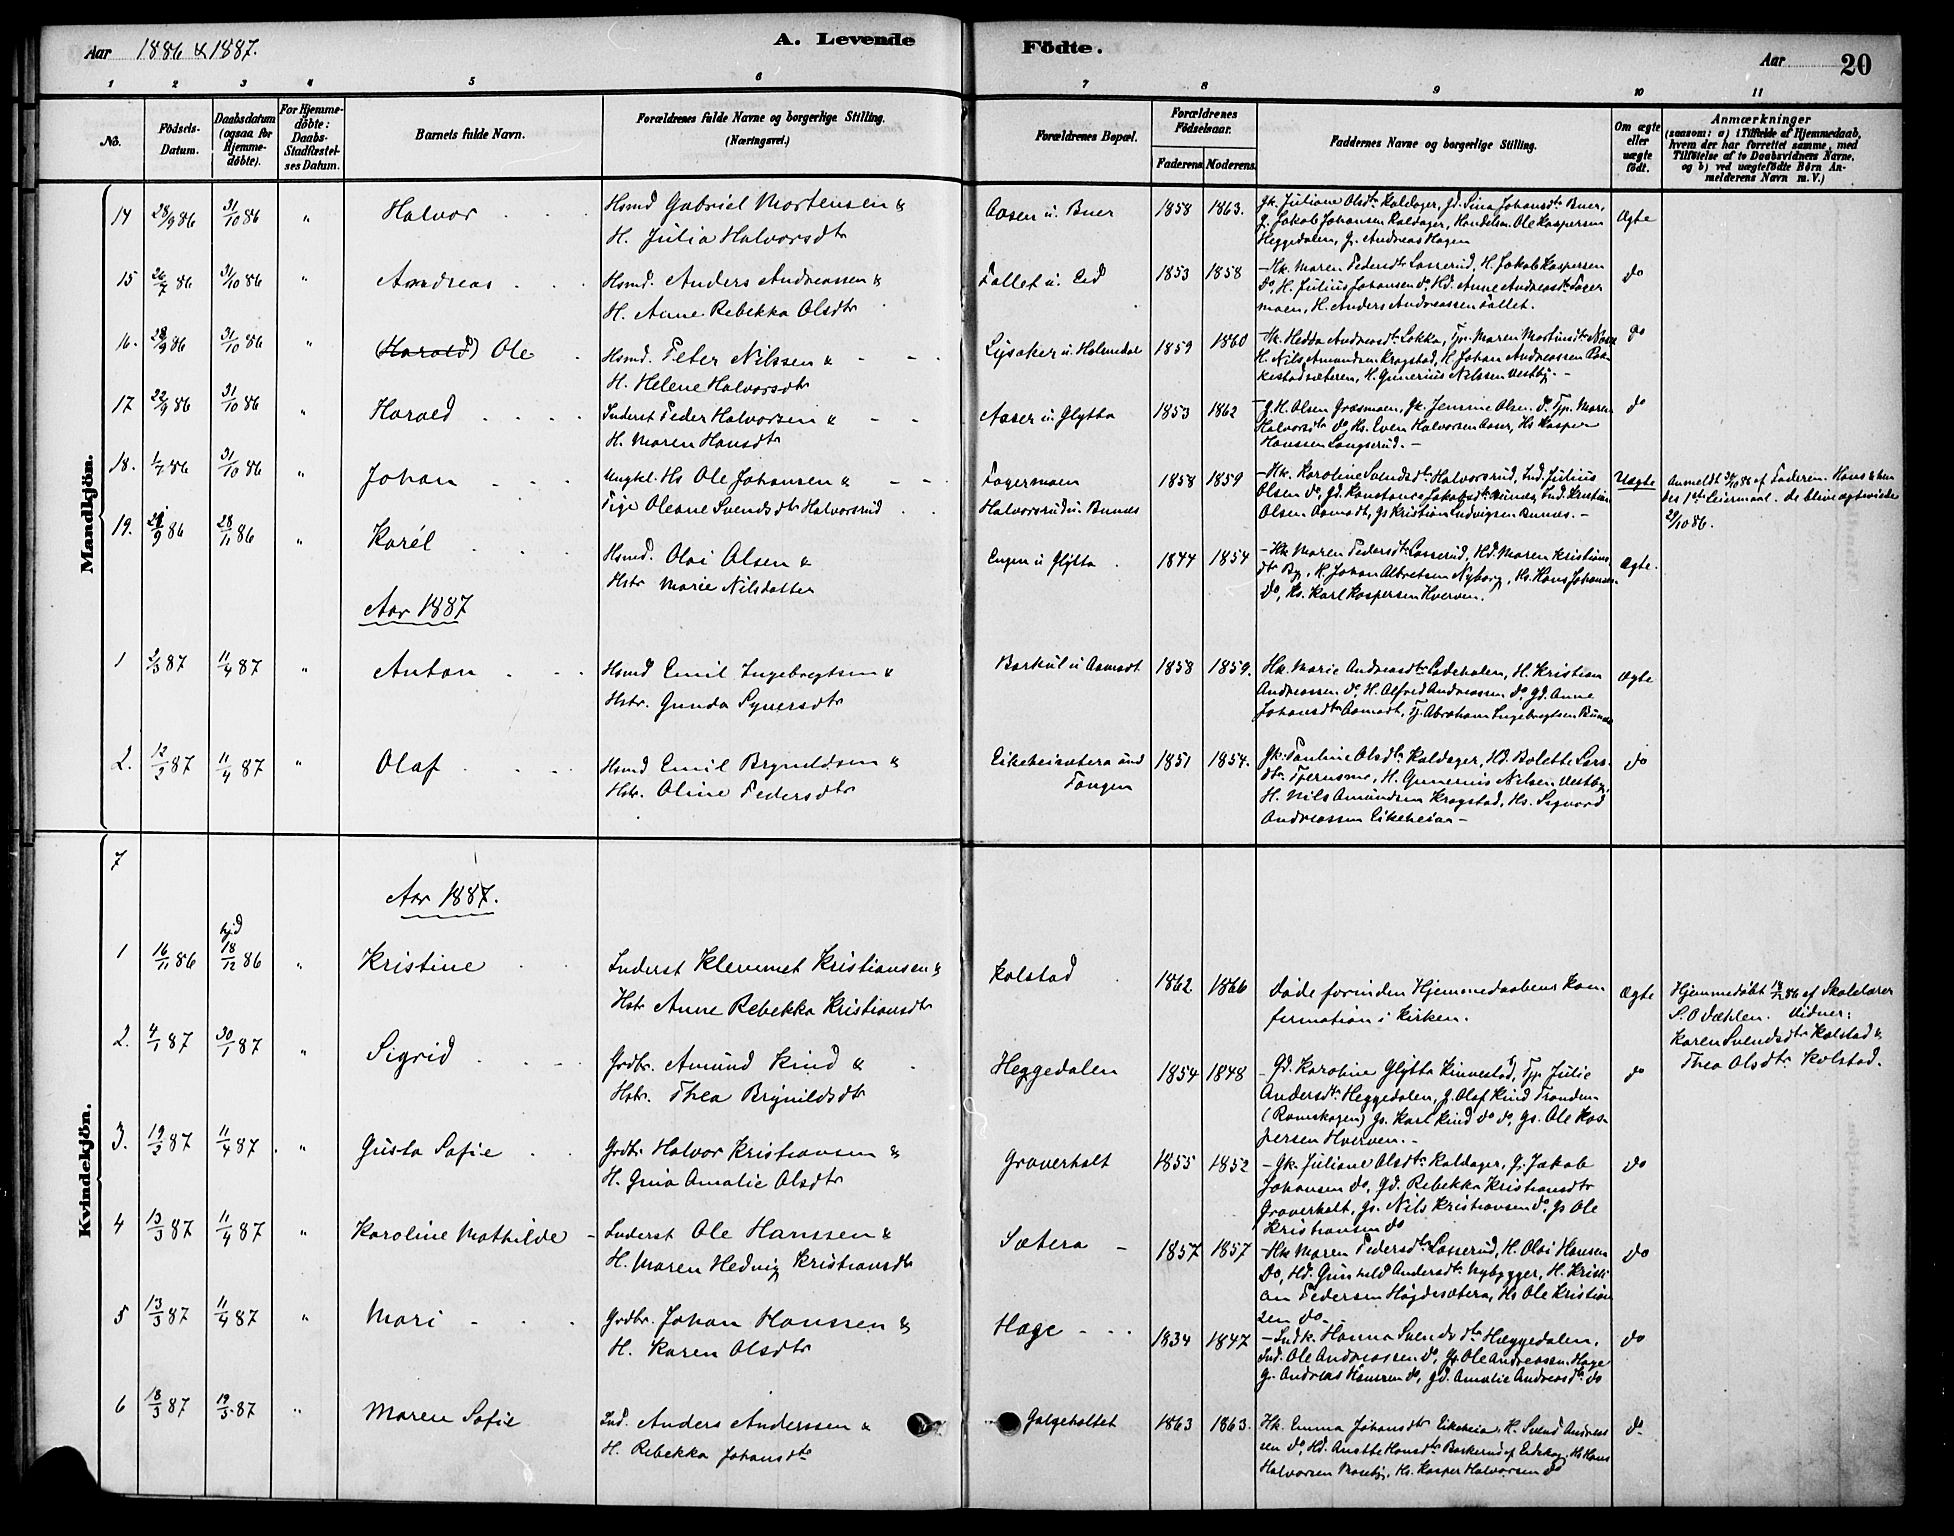 Aar 1886 & 1887.
A. Levende Födte.
Aar 20
1 2 3 4 5 6 7 8 9 10 11
No.
Födsels-Datum.
Daabsdatum (ogsaa for Hjemme-döbte).
For Hjemme-döbte: Daabs-Stadfæstelses Datum.
Barnets fulde Navn.
Forældrenes fulde Navne og borgerlige Stilling. (Næringsvei.)
Forældrenes Bopæl.
Forældrenes Födselsaar.
Faderens Moderens
Faddernes Navne og borgerlige Stilling.
Om ægte eller uægte födt.
Anmærkninger
(saasom: a) i Tilfælde af Hjemmedaab, hvem der har forrettet samme, med Tilföielse af to Daabsvidners Navne, og b) ved uægtefödte Börn Anmelderens Navn m. V.)
Mandkjön.
14 28/9 86 31/10 86 " Halvor
Hsmd Gabriel Mortensen &
H. Julia Halvorsdtr
Aasen u. Buer 1858 1863.
Gk. Juliane Olsdtr Kaldager, Gd. Sina Johansdtr Buer,
G. Jakob Johansen Kaldager, Handelsm. Ole Kaspersen
Heggedalen, G. Andreas Hagen
Ægte
15 26/7 86 31/10 86 " Andreas
Hsmd. Anders Andreassen &
H. Anne Rebekka Olsdtr
Fallet u. Eid 1853 1858
Hk. Maren Pedersdtr Lasserud, H. Jakob Kaspersen
Do, H. Julius Johansen do, Hd. Anne Andreasdtr Foser
moen, H. Anders Andreassen Fallet.
do
16. 28/9 86 31/10 86 " (Harald) Ole
Hsmd. Peter Nilssen &
H. Helene Halvorsdtr
Lysaker u. Holmedal 1859 1860
Hk. Hedda AndreasdtrLøkka, Tp. Maren Martinsdtr
H. Nils Amundsen Kragstad, H. Johan Andreassen
kestadsæteren, H. Gunerius Nilssen Vestby. -
do
17 22/9 86 31/10 86 " Harald
Inderst Peder Halvorsen &
H. Maren Hansdtr
Aaser u. Glytta 1853 1862
G. H. Olsen Græsmoen, Gk. Jensine Olsen do. Tp. Maren
Halvorsdtr do, Hs. Even Halvorsen Aaser, Hs Kasper
Hanssen Langserud. -
do
18. 1/7 86 31/10 86 " Johan
Ungkl. Hs Ole Johansen &
Pige Oleane Svendsdtr Halvorsrud
Fosermoen
Halvorsrud u. Bunes
1858 1859
Hk. Karoline Svendsdtr Halvorsrud, Ind. Julius
Olsen do, Gd. Konstance Jakobsdtr Bunes, Ind. Kristian
Olsen Aamodt, Gs Kristian Ludvigsen Bunes. -
Uægte
Anmeldt 31/10 86 af Faderen. Hans & hen
des 1ste Leiermaal. De blive ægteviede
29/10 86.
19. 28/9 86 28/11 86 " Karél
Hsmd. Olai Olsen &
Hstr Marie Nilsdatter
Engen u Glytta 1844 1854
Hk. Maren Pedersdtr Lasserud, Hd. Maren Kristians
dtr By, H. Johan Albretsen Nyborg, Hs. Hans Johansen
Do, Hs. Karl Kaspersen Hverven.
Ægte.
Aar 1887
1 2/3 87 11/4 87 " Anton
Hsmd Emil Ingebregtsen &
Hstr. Gunda Syversdtr
Barkul u Aamodt 1858 1859.
Hk. Marie Andreasdtr Ladehalen, H. Kristian
Andreassen do, H. Alfred Andreassen do, Gd. Anne
Johansdtr Aamodt, Tj. Abraham Ingebregtsen Bunes
Ægte
2. 12/2 87 11/4 87 " Olaf
Hsmd Emil Brynildsen &
Hstr. Oline Pedersdtr
Eikeheisætera und
Tangen
1851 1854.
Gk. Pauline Olsdtr Kaldager, Hd. Bolette Lars
dtr Tjernsmo, H. Gunerius Nilsen Vestby,
H. Nils Amundsen Kragstad, Hs. Sigvard
Andreassen Eikeheian -
do
Kvindekjön.
7
Aar 1887.
1 16/11 86 hjd 18/12 86 " Kristine
Inderst Klemmet Kristiansen &
Hstr Anne Rebekka Kristiansdtr
Kolstad 1862 1866
Døde forinden Hjemmedaabens Kon-
firmation i Kirken.
Ægte
Hjemmedøbt 18/12 86 af Skolelærer
S. O Dæhlen. Vidner:
Karen Svendsdtr Kolstad &
Thea Olsdtr Kolstad.
2. 4/1 87 30/1 87 " Sigrid
Grdbr. Amund Kind &
Hstr. Thea Brynildsdtr
Heggedalen 1854 1848
Gd. Karoline Glytta Kinnestad, Tp Julie
Andersdtr Heggedalen, G. Olaf Kind Tranden
(Romskogen) Gs. Karl Kind do do, Gs. Ole Kas-
persen Hverven. -
do
3. 19/2 87 11/4 87 . " Gusta Sofie
Grdbr. Halvor Kristiansen &
H. Gina Amalie Olsdtr
Graverholt 1855 1852
- Gk. Juliane Olsdtr Kaldager, G. Jakob
Johansen do, Gd. Rebekka Kristiansdtr
Graverholt, Gs. Nils Kristiansen do, Gs Ole
Kristiansen do
do
4 13/3 87 11/4 87 " Karoline Mathilde -
Inderst Ole Hanssen &
H. Maren Hedvig Kristiansdtr
Sætera - 1857 1857
Hk Maren Pedersdtr Lasserud, H. Olai Hansen
Do, Hd. Gunhild Andersdtr Nybygger, H. Kristi
an Pedersen Høgdesætera, Hs Ole Kristian
sen do.
do
5 13/3 87 11/4 87 " Mari
Grdbr. Johan Hanssen &
H. Karen Olsdtr
Hage 1834 1847
- Indk. Hanna Svendsdtr Heggedalen,
Ind. Ole Andreassen do, Gs Ole Andreassen Hage
G. Andreas Hansen do, Gd. Amalie Andreasdtr do
do
6 18/3 87 19/5 87 " Maren Sofie
Ind. Anders Anderssen &
H. Rebekka Johansdtr
Galgeholtet 1863 1863.
Hk. Emma Johansdtr Eikeheia, H. Svend Andreas
sen do, Hd. Anette Hansdtr Barkerud af Eidskog, Hs Hans
Halvorsen Moseby, Hs. Kasper Halvorsen do
do